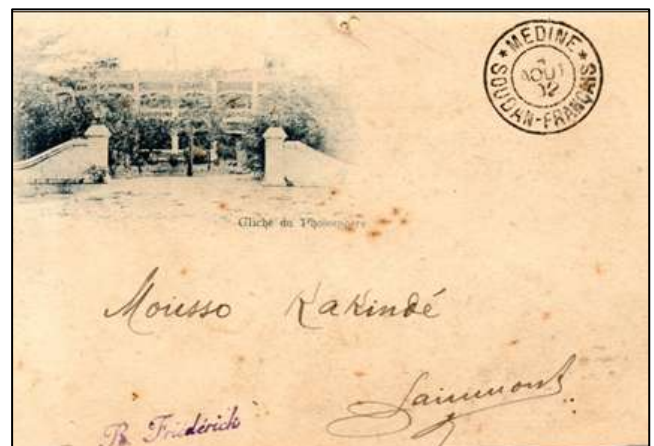 ★ MEDINE ★
AOUT
02
SOUDAN-FRANÇAIS
Cliché du
Mousso Kakindé
B. Friédérich